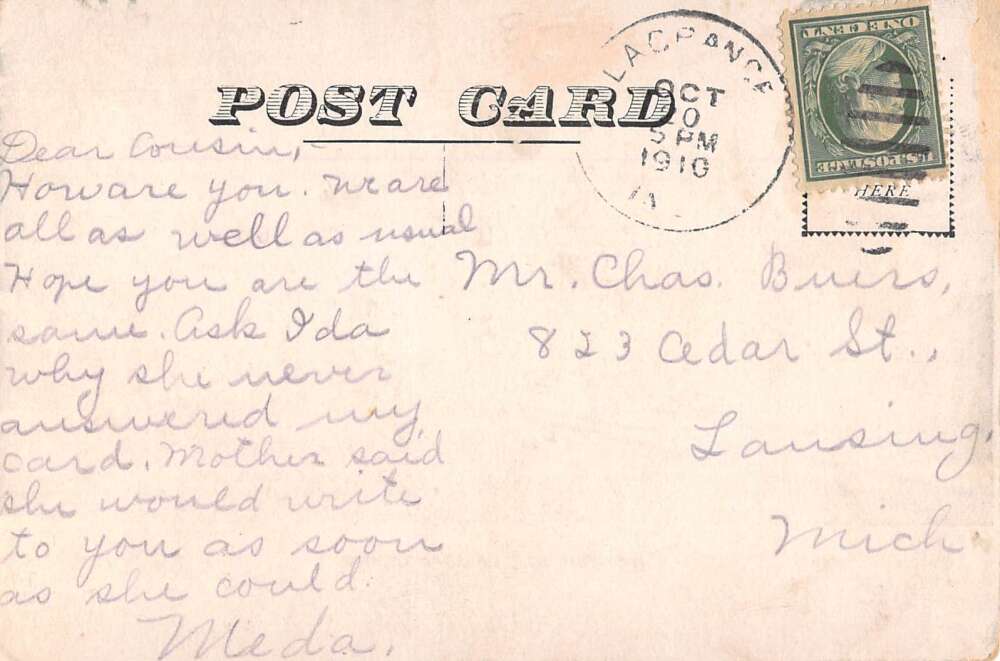 POST CARD
LAGRANGE
OCT
20
5 PM
1910
ONE CENT
U.S. POSTAGE
HERE
Dear Cousin,-
How are you. We are
all as well as usual
Hope you are the
same. Ask Ida
why she never
answered my
card. Mother said
she would write
to you as soon
as she could.
Meda.
Mr. Chas. Buers,
823 Cedar St.,
Lansing,
Mich